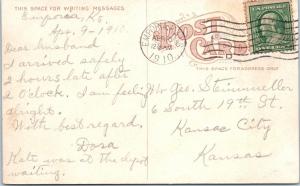 THIS SPACE FOR WRITING MESSAGES
Emporia, Ks.
Apr. 9-1910.
Dear husband
I arrived safely
2 hours late after
2 O'clock. I am feeling
alright.
With best regard,
Dora
Kate was at the depot
waiting.
POST
CARD
EMPORIA
1910
THIS SPACE FOR ADDRESS ONLY
Mr Geo.
6 South 19th St.
Kansas City
Kansas